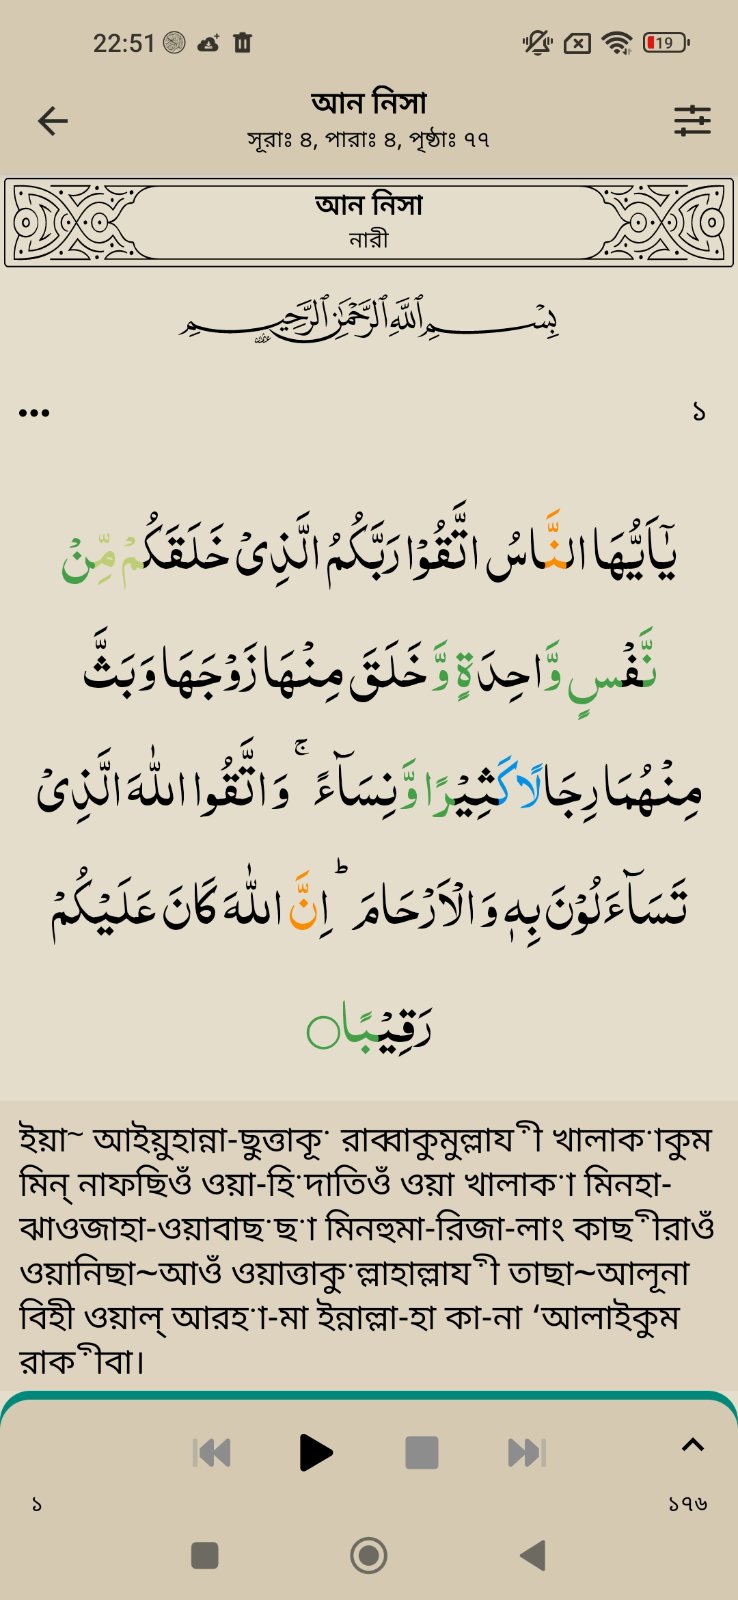 22:51
19
আন নিসা
সূরাঃ ৪, পারাঃ ৪, পৃষ্ঠাঃ ৭৭
আন নিসা
নারী
بِسْمِ اللَّهِ الرَّحْمَٰنِ الرَّحِيمِ
১
يٰٓاَيُّهَا النَّاسُ اتَّقُوْا رَبَّكُمُ الَّذِىْ خَلَقَكُمْ مِّنْ
نَّفْسٍ وَّاحِدَةٍ وَّخَلَقَ مِنْهَا زَوْجَهَا وَبَثَّ
مِنْهُمَا رِجَالًا كَثِيْرًا وَّنِسَآءً ۚ وَاتَّقُوا اللّٰهَ الَّذِىْ
تَسَآءَلُوْنَ بِهٖ وَالْاَرْحَامَ ؕ اِنَّ اللّٰهَ كَانَ عَلَيْكُمْ
رَقِيْبًا
ইয়া~ আইয়ুহান্না-ছুত্তাকূ ˙ রাব্বাকুমুল্লায ী খালাক ˙াকুম
মিন্ নাফছিওঁ ওয়া-হি ˙দাতিওঁ ওয়া খালাক ˙া মিনহা-
ঝাওজাহা-ওয়াবাছ ˙ছ ˙া মিনহুমা-রিজা-লাং কাছ ীরাওঁ
ওয়ানিছা~আওঁ ওয়াত্তাকু ˙ল্লাহাল্লায ী তাছা~আলূনা
বিহী ওয়াল্ আরহ ˙া-মা ইন্নাল্লা-হা কা-না ‘আলাইকুম
রাক ীবা।
১
১৭৬